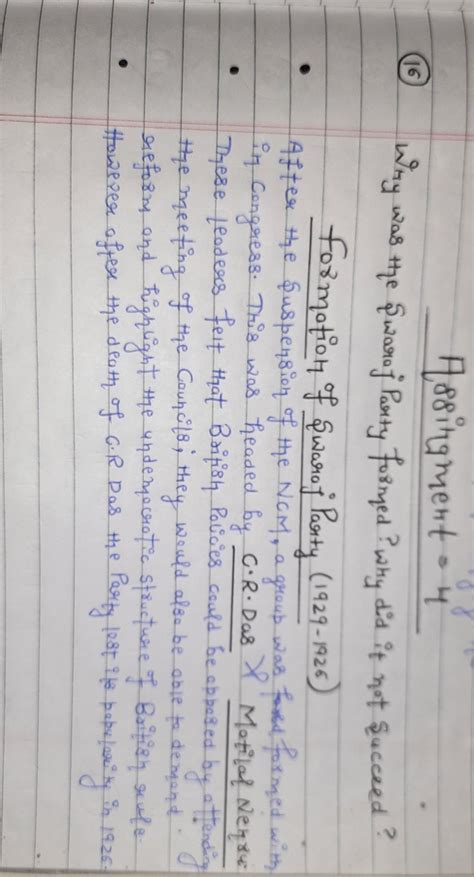 Assingment - 4
16 Why was the Swaraj Party formed? Why did it not succeed?
Formation of Swaraj Party (1929-1926)
• After the Suspension of the NCM, a group was formed with
in Congress. This was headed by C.R. Das & Motilal Nehru
• These leaders felt that British Policies could be opposed by attending
the meeting of the Councils; they would also be able to demand
reform and highlight the undemocratic structure of British rule.
• However after the death of C.R Das the Party lost its popularity in 1926.